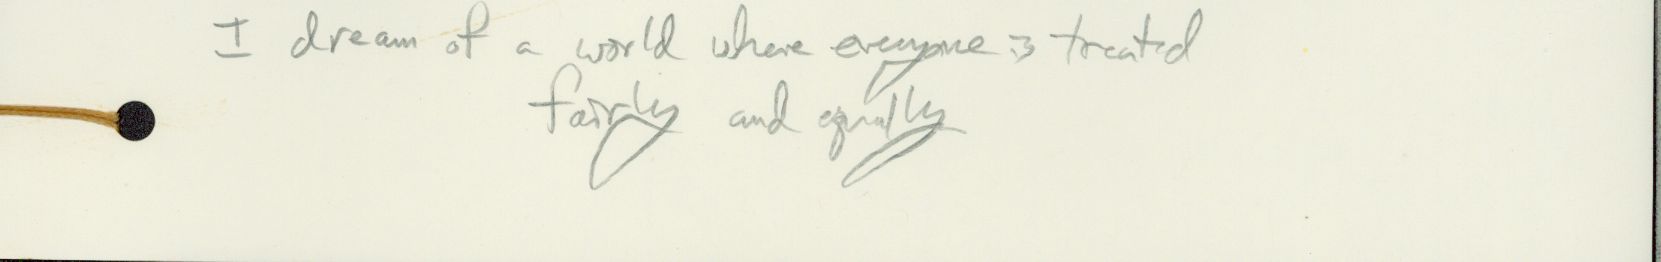 I dream of a world where everyone is treated
fairly and equally